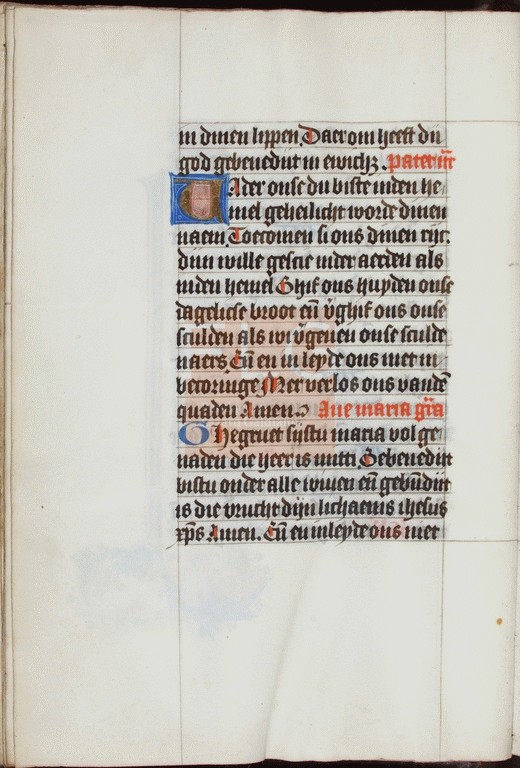 in dinen lippen. Daer om heeft du
god gebenedijt in ewich3. Pater nr̄
VAder onse du biste inden he-
mel geheilicht worde dinen
naem. Toecomen si ons dinen rijc.
dijn wille gescie inder aerden als
inden hemel Ghif ons huyden onse
dagelicse broot eñ v̄ghif ons onse
sculden als wi v̄geuen onse sculde
naers. Eñ en in leyde ons niet in
becoringe Mer verlos ons vandē
quaden Amen. Aue maria gr̄a
GHegruet sijstu maria vol ge
naden die heer is mitti. Gebenedijt
bistu onder alle wiuen eñ gebn̄dijt
is die vrucht dijn lichaems ihesus
xp̄s Amen. Eñ en inleyde ons niet